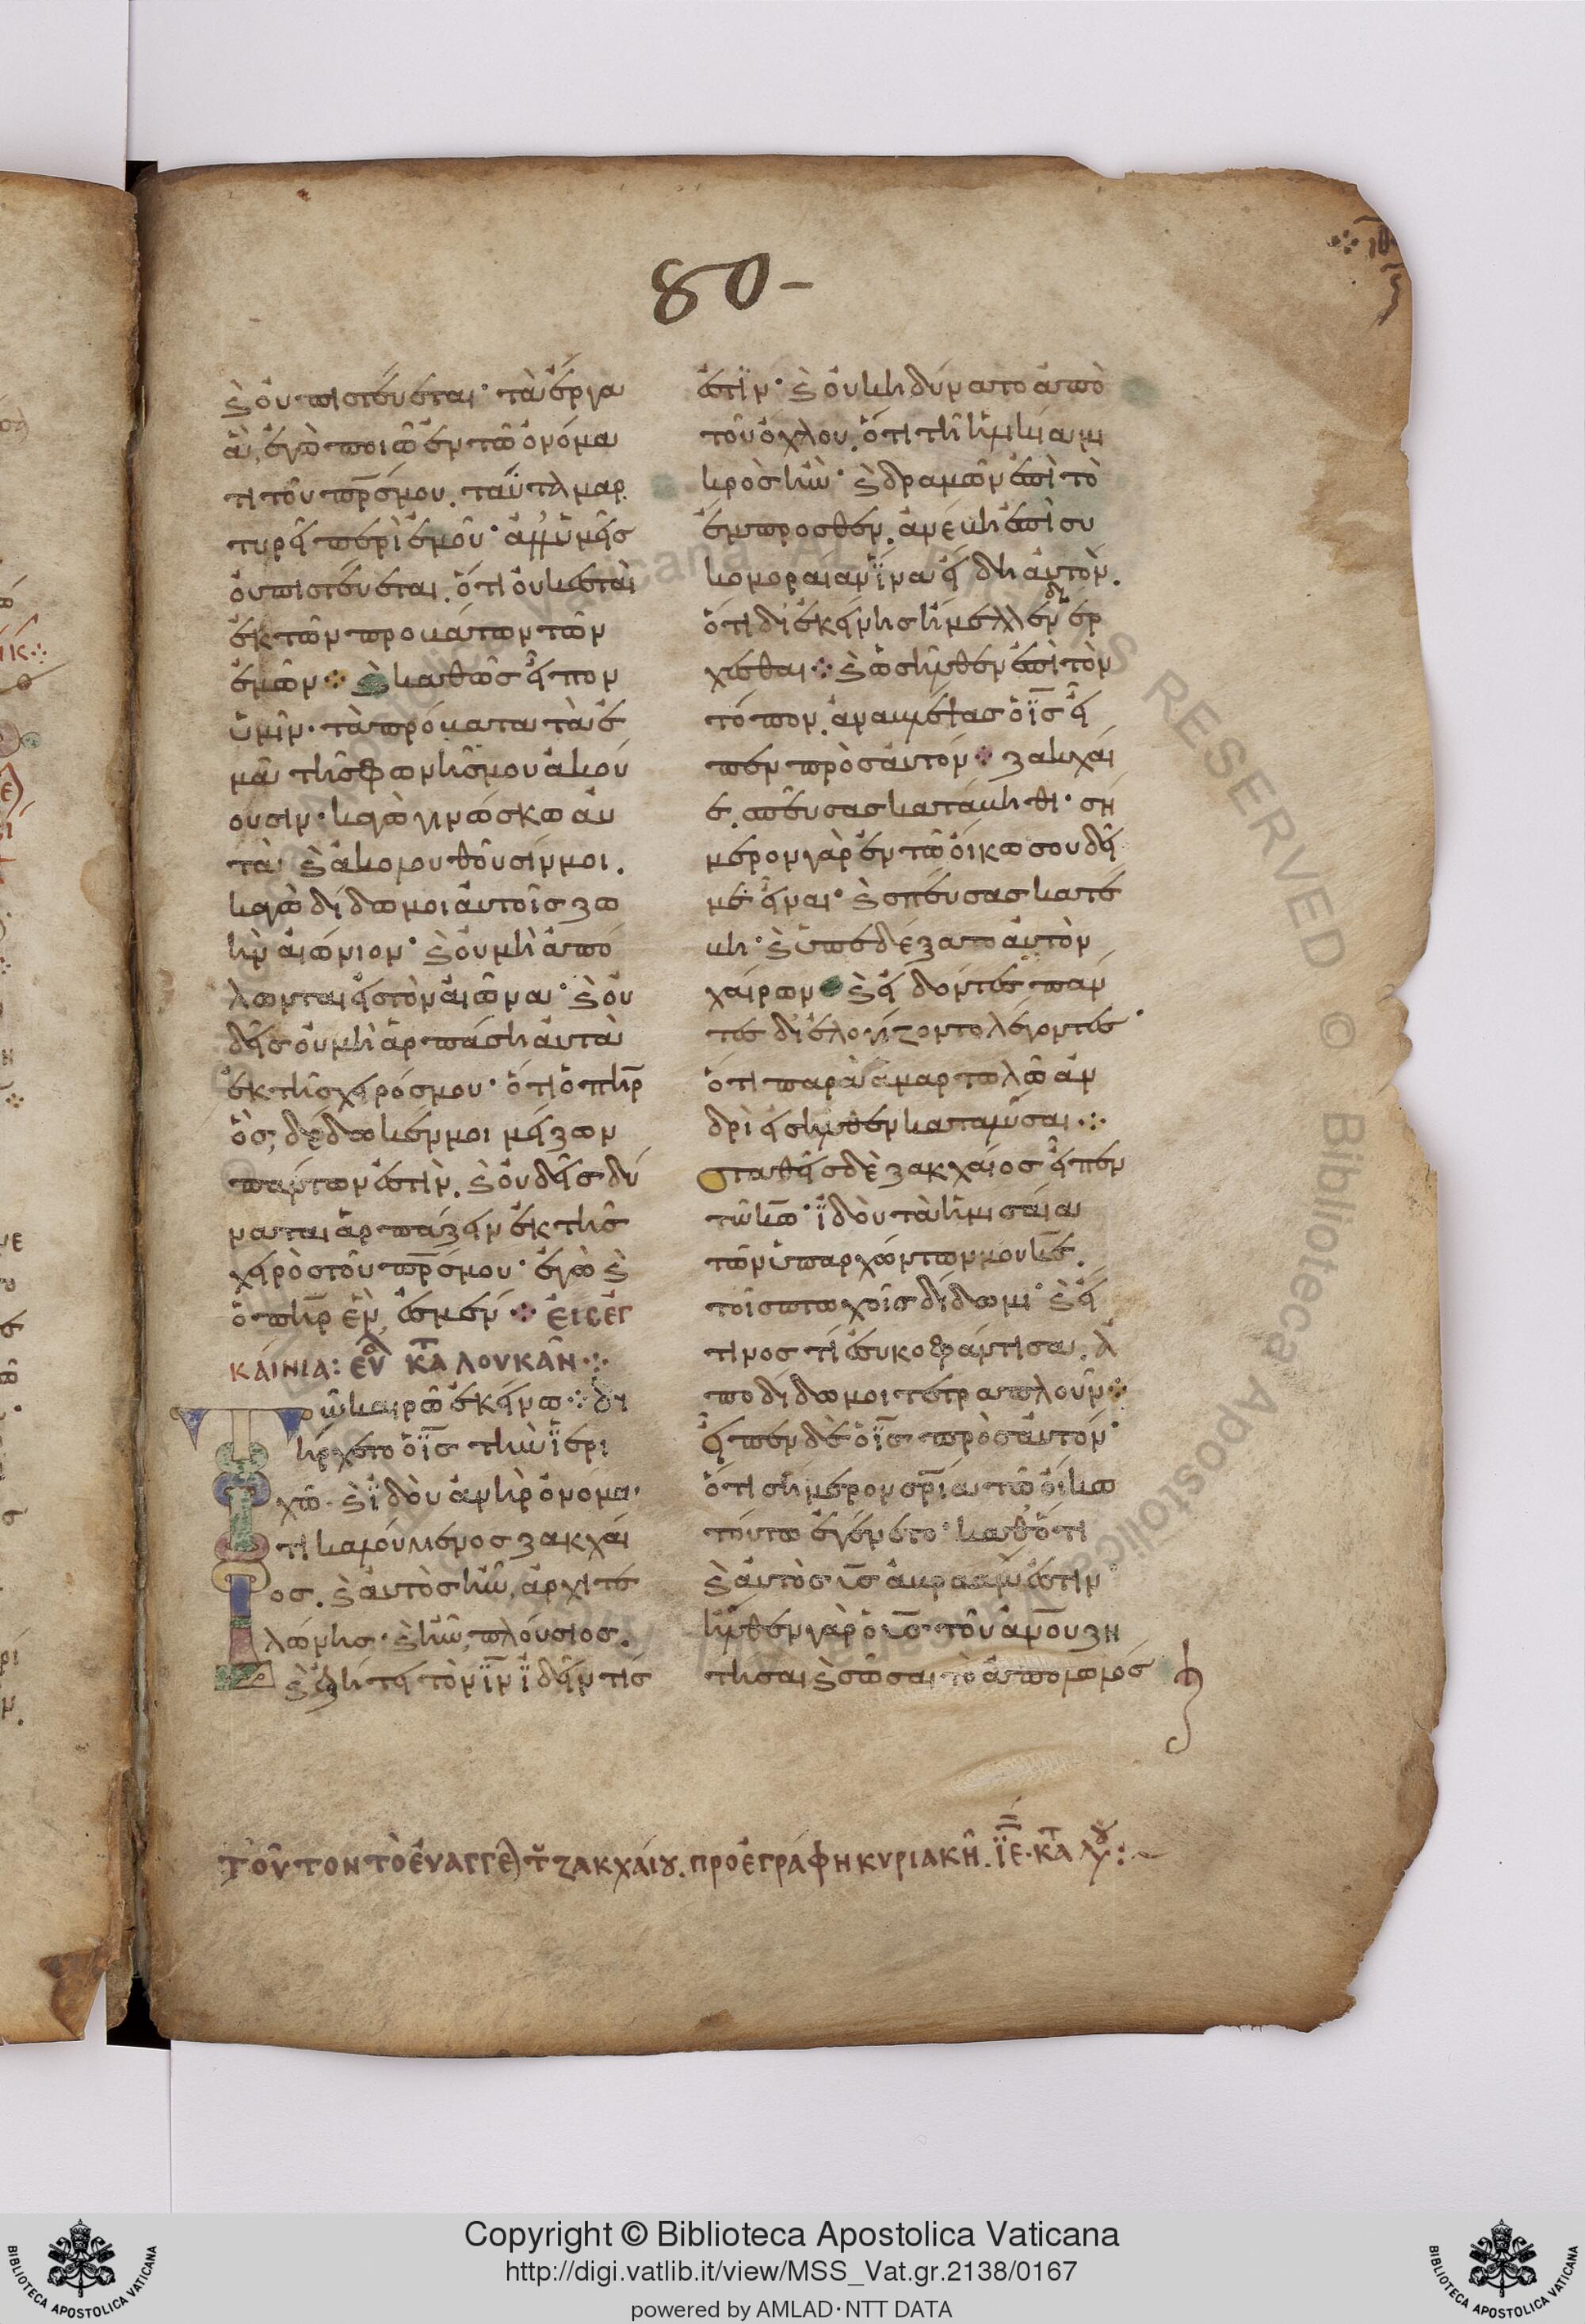 80-
ϗ οὐ πιστέυεται· τὰ ἔργα
ἃ, ἐγὼ ποιῶ ἐν τῶ ὀνόμα
τι τοῦ πρ̅ς μου. ταῦτα μαρ
τυρεῖ περὶ ἐμοῦ· ἀλλ' ὑμεῖς
οὐ πιστέυεται. ὅτι οὐκ εσταὶ
ἐκ τῶν προβάτων τῶν
ἐμῶν ϗ καθῶς εἶπον
ὑμῖν· τὰ πρόβατα τὰ ἐ
μὰ τῆς φωνῆς μου ἀκού
ουσιν· καγὼ γινώσκω ἀυ
τὰ ϗ ἀκολουθοῦσίν μοι.
καγὼ δίδωμοι ἀυτοῖς ζω
ὴν ἀιώνιον· ϗ οὐ μὴ ἀπό
λωνται εἰς τὸν ἀιῶνα· ϗ οὐ
δεῖς οὐ μὴ ἁρπάση ἀυτὰ
ἐκ τῆς χειρός μου· ὅτι ὁ πὴρ̅
ὃς, δέδωκέν μοι μείζων
πάντων ἐστὶν. ϗ οὐδεῖς δύ
ναται ἁρπάζειν ἐκ τῆς
χειρὸς τοῦ πρ̅ς μου· ἐγὼ ϗ
ὁ πὴρ̅ ἓν, ἐσμέν ΕΙϹ ΕΓ
ΚΑΙΝΙΑ: ΕΥ ΚΑΤ ΛΟΥΚΑΝ
Τῶ καιρῶ ἐκείνω δι
ήρχετο ὁ ι̅ς τὴν ἱερι
χῶ· ϗ ἰδοὺ ἀνὴρ ὀνόμα
τι καλούμενος ζακχαί
ος. ϗ ἀυτὸς ἦν, ἀρχιτε
λώνης· ϗ ἦν, πλούσιος.
ϗ ἐζήτει τὸν ι̅ν ἰδεῖν τίς
ἐστϊν· ϗ οὐκ ηδύνατο ἀπὸ
τοῦ ὄχλου. ὅτι τῆ ἡλικία μι
κρὸς ἦν· ϗ δραμῶν ἐπὶ τὸ
ἔμπροσθεν. ἀνέβη ἐπὶ συ
κομοραίαν ἵνα εἴδη ἀυτὸν.
ὅτι δι' ἐκείνης ἤμελλεν διερ
χεσθαι ϗ ὡς ἦλθεν ἐπὶ τὸν
τόπον. ἀναβλέψας ὁ ι̅ς εἶ
πεν πρὸς ἀυτόν ζακχαί
ε. σπεύσας κατάβηθι· σή
μερον γὰρ ἐν τῶ οἴκω σου δεῖ
με εἶναι· ϗ σπέυσας κατέ
βη· ϗ ὑπεδέξατο ἀυτὸν
χαίρων ϗ εἰδόντες παν
τες διελογίζοντο λέγοντες
ὅτι παρὰ ἁμαρτωλῶ ἀν
δρὶ εἰσῆλθεν καταλῦσαι
σταθεῖς δὲ ζακχαίος εἶπεν
τῶ κ̅ω· ἰδοὺ τὰ ἡμισαία
τῶν ὑπαρχώντων μου κ̅ε.
τοῖς πτωχοῖς δίδωμι· ϗ εἴ
τινος τί ἐσυκοφάντισα. ἀ
ποδίδωμοι τετραπλοῦν
εἶπεν δὲ ὁ ι̅ς πρὸς ἀυτόν
ὅτι σήμερον σρ̅ία τῶ οἴκω
τούτω ἐγένετο· καθότι
ϗ ἀυτὸς υ̅ς ἀβραάμ ἐστιν
ἦλθεν γὰρ ὁ υ̅ς τοῦ ἀν̅ου ζη
τησαι ϗ σῶσαι τὸ ἀπολωλός
ΤΟῦΤΟΝ ΤὸΕὐΑΓΓΕ ΖΑΚΧΑΙΟΥ. ΠΡΟΕΓΡΑΦΗ ΚΥΡΙΑΚῆ. ΙΕ· ΚΑΤ ΛΟΥ:
Copyright © Biblioteca Apostolica Vaticana
http://digi.vatlib.it/view/MSS_Vat.gr.2138/0167
powered by AMLAD·NTT DATA
BIBLIOTECA APOSTOLICA VATICANA
BIBLIOTECA APOSTOLICA VATICANA